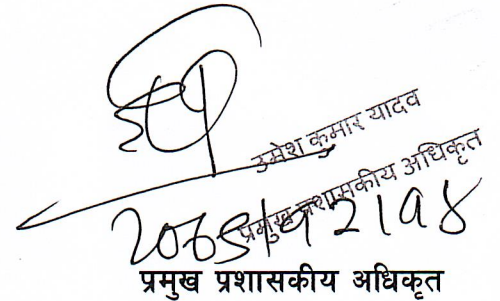 उमेश कुमार यादव
प्रमुख प्रशासकीय अधिकृत
प्रमुख प्रशासकीय अधिकृत